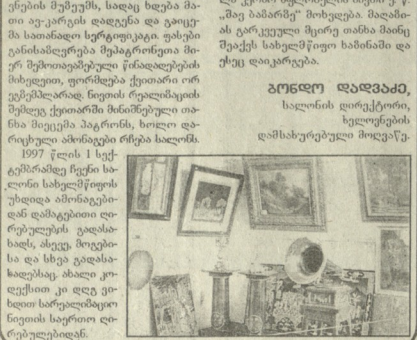 ვნების მუზეუმს, სადაც ხდება მა-
თი ავ-კარგის დადგენა და გაიცე-
მა სათანადო სერტიფიკატი. ფასები
განისაზღვრება მეპატრონეთა მი-
ერ შემოთავაზებული წინადადებების
მიხედვით, ფორმდება ქვითარი ორ
ეგზემპლარად. ნივთის რეალიზაციის
შემდეგ ქვითარში მინიშნებული თა-
ნხა მიეცემა პატრონს, ხოლო და-
რიცხული ამონაგები რჩება სალონს.
1997 წლის 1 სექ-
ტემბრამდე ჩვენი სა-
ლონი სახელმწიფოს
უხდიდა ამონაგები-
დან დამატებითი ღი-
რებულების გადასა-
სადს, ასევე, მოგები-
სა და სხვა გადასა-
ხადებსაც. ახალი კო-
დექსით კი დღგ ვი-
ხდით სარეალიზაციო
ნივთის საერთო ღი-
რებულებიდან.
„შავ ბაზარზე" მოხვდება. მაღაზი-
ას გარკვეული მცირე თანხა მაინც
შეაქვს სახელმწიფო ხაზინაში და
ესეც დაიკარგება.
გონდო დადვაძე,
სალონის დირექტორი,
ხელოვნების
დამსახურებული მოღვაწე.